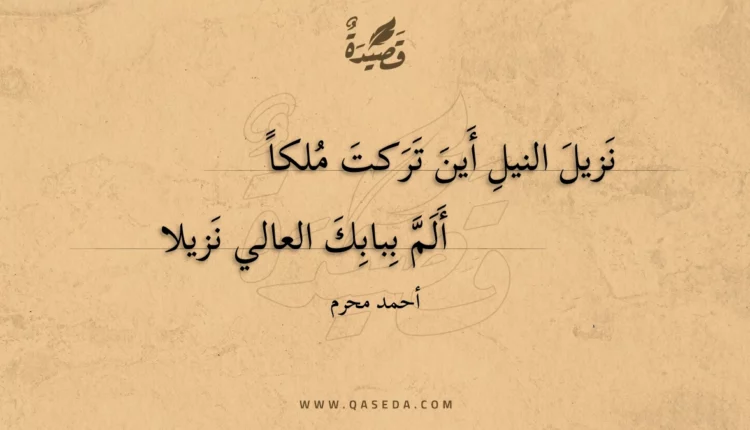 قَصِيدَةٌ
نَزيلَ النيلِ أَينَ تَرَكتَ مُلكاً
أَلَمَّ بِبابِكَ العالي نَزيلا
أحمد محرم
WWW.QASEDA.COM